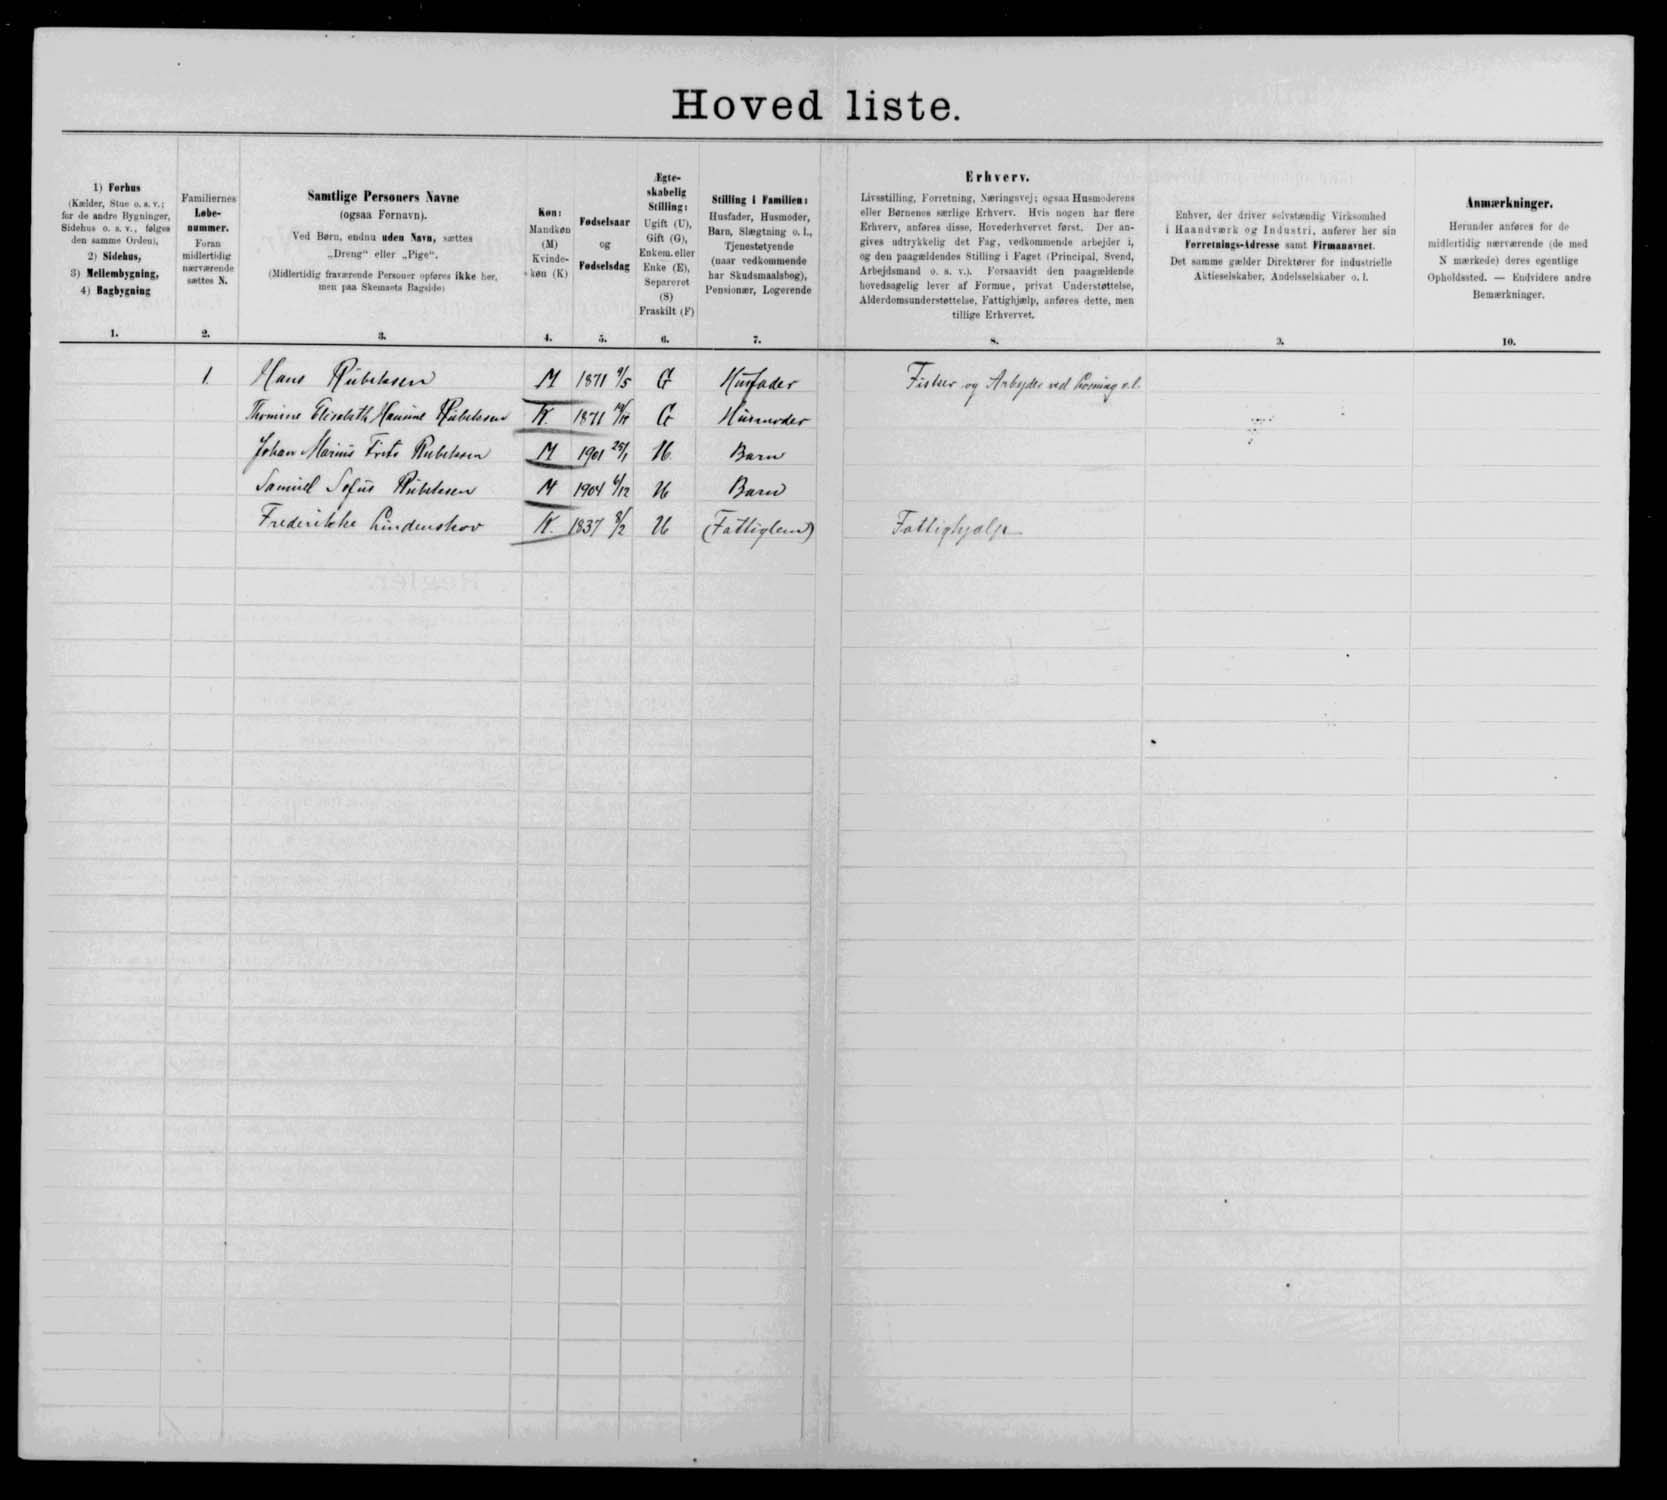 Hoved liste.
1) Forhus
(Kælder, Stue o. s. v.;
for de andre Bygninger,
Sidehus o. s. v., følges
den samme Orden),
2) Sidehus,
3) Mellembygning,
4) Bagbygning
1.
Familiernes
Løbe-
nummer.
Foran
midlertidig
nærværende
sættes N.
2.
Samtlige Personers Navne
(ogsaa Fornavn).
Ved Børn, endnu uden Navn, sættes
„Dreng“ eller „Pige“.
(Midlertidig fraværende Personer opføres ikke her,
men paa Skemaets Bagside)
3.
Køn:
Mandkøn
(M)
Kvinde-
køn (K)
4.
Fødselsaar
og
Fødselsdag
5.
Ægte-
skabelig
Stilling:
Ugift (U),
Gift (G),
Enkem. eller
Enke (E),
Separeret
(S)
Fraskilt (F)
6.
Stilling i Familien:
Husfader, Husmoder,
Barn, Slægtning o. l.,
Tjenestetyende
(naar vedkommende
har Skudsmaalsbog),
Pensionær, Logerende
7.
Erhverv.
Livsstilling, Forretning, Næringsvej; ogsaa Husmoderens
eller Børnenes særlige Erhverv. Hvis nogen har flere
Erhverv, anføres disse, Hovederhvervet først. Der an-
gives udtrykkelig det Fag, vedkommende arbejder i,
og den paagældendes Stilling i Faget (Principal, Svend,
Arbejdsmand o. s. v.). Forsaavidt den paagældende
hovedsagelig lever af Formue, privat Understøttelse,
Alderdomsunderstøttelse, Fattighjælp, anføres dette, men
tillige Erhvervet.
8.
Enhver, der driver selvstændig Virksomhed
i Haandværk og Industri, anfører her sin
Forretnings-Adresse samt Firmanavnet.
Det samme gælder Direktører for industrielle
Aktieselskaber, Andelsselskaber o. l.
9.
Anmærkninger.
Herunder anføres for de
midlertidig nærværende (de med
N mærkede) deres egentlige
Opholdssted. — Endvidere andre
Bemærkninger.
10.
1. Hans Rübeksen M 1871 9/5 G Husfader Fisker og Arbejde ved
Thomine Elisabeth Hansine Rübeksen K. 1871 G Husmoder
Johan Marius Frits Rubeksen M 1901 25/1 U Barn
Samuel Sofus Rübeksen M 1904 6/12 U Barn
Frederikke Lindenskov K. 1837 8/2 U (Fattiglem) Fattighjælp